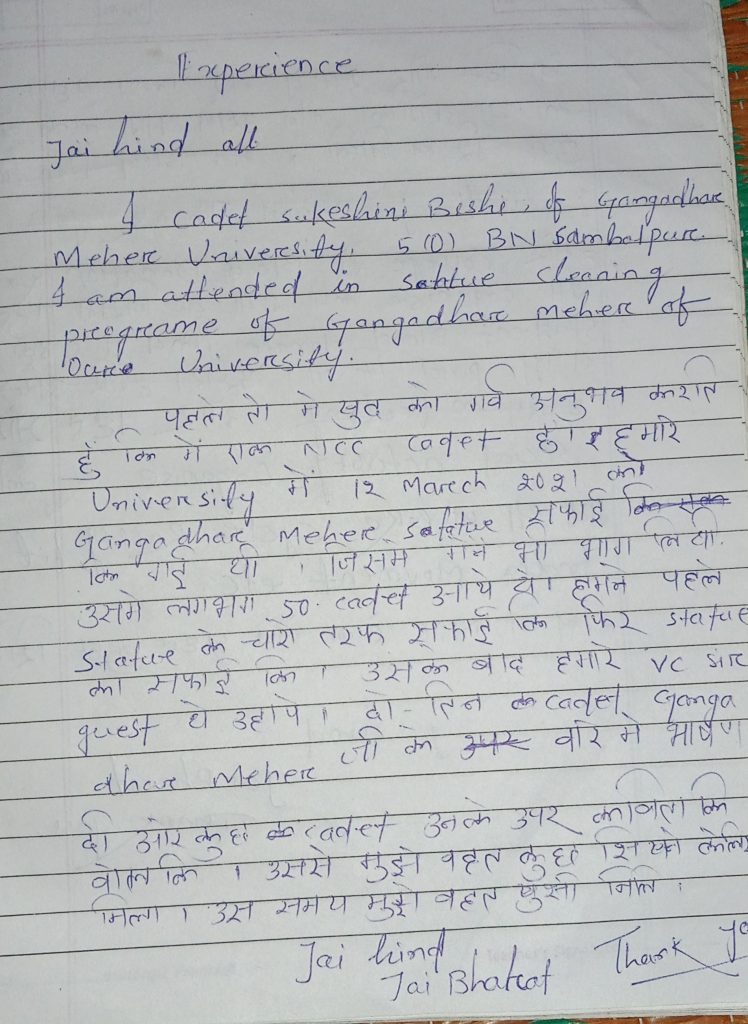 Experience
Jai hind all
I cadet sukeshini Beshi, of Gangadhar
Meher University, 5 (O) BN Sambalpur.
I am attended in sattue cleaning
programe of Gangadhar meher of
Oure University.
पहले तो मे खुद को गर्व अनुभव करति
हुँ कि में एक NCC cadet हुं। हमारे
University में 12 March 2021 को
Gangadhar Meher satatue सफाई
कि गई थी । जिसमे मेने भी भाग लियी.
उसमे लगभग 50. cadet आये थे। हमने पहले
statue के चारो तरफ सफाई कि फिर statue
का सफाई कि । उसके बाद हमारे VC sir
guest थे उहापे । दो-तिन cadet Ganga
dhar Meher जी के बारे मे भाषण
दी और कुछ cadet उनके उपर कविता कि
बोल कि । उससे मुझे बहत कुछ सिखने केलिए
मिला । उस समय मुझे बहत खुसी मिलि ।
Jai hind Thank
Jai Bharat